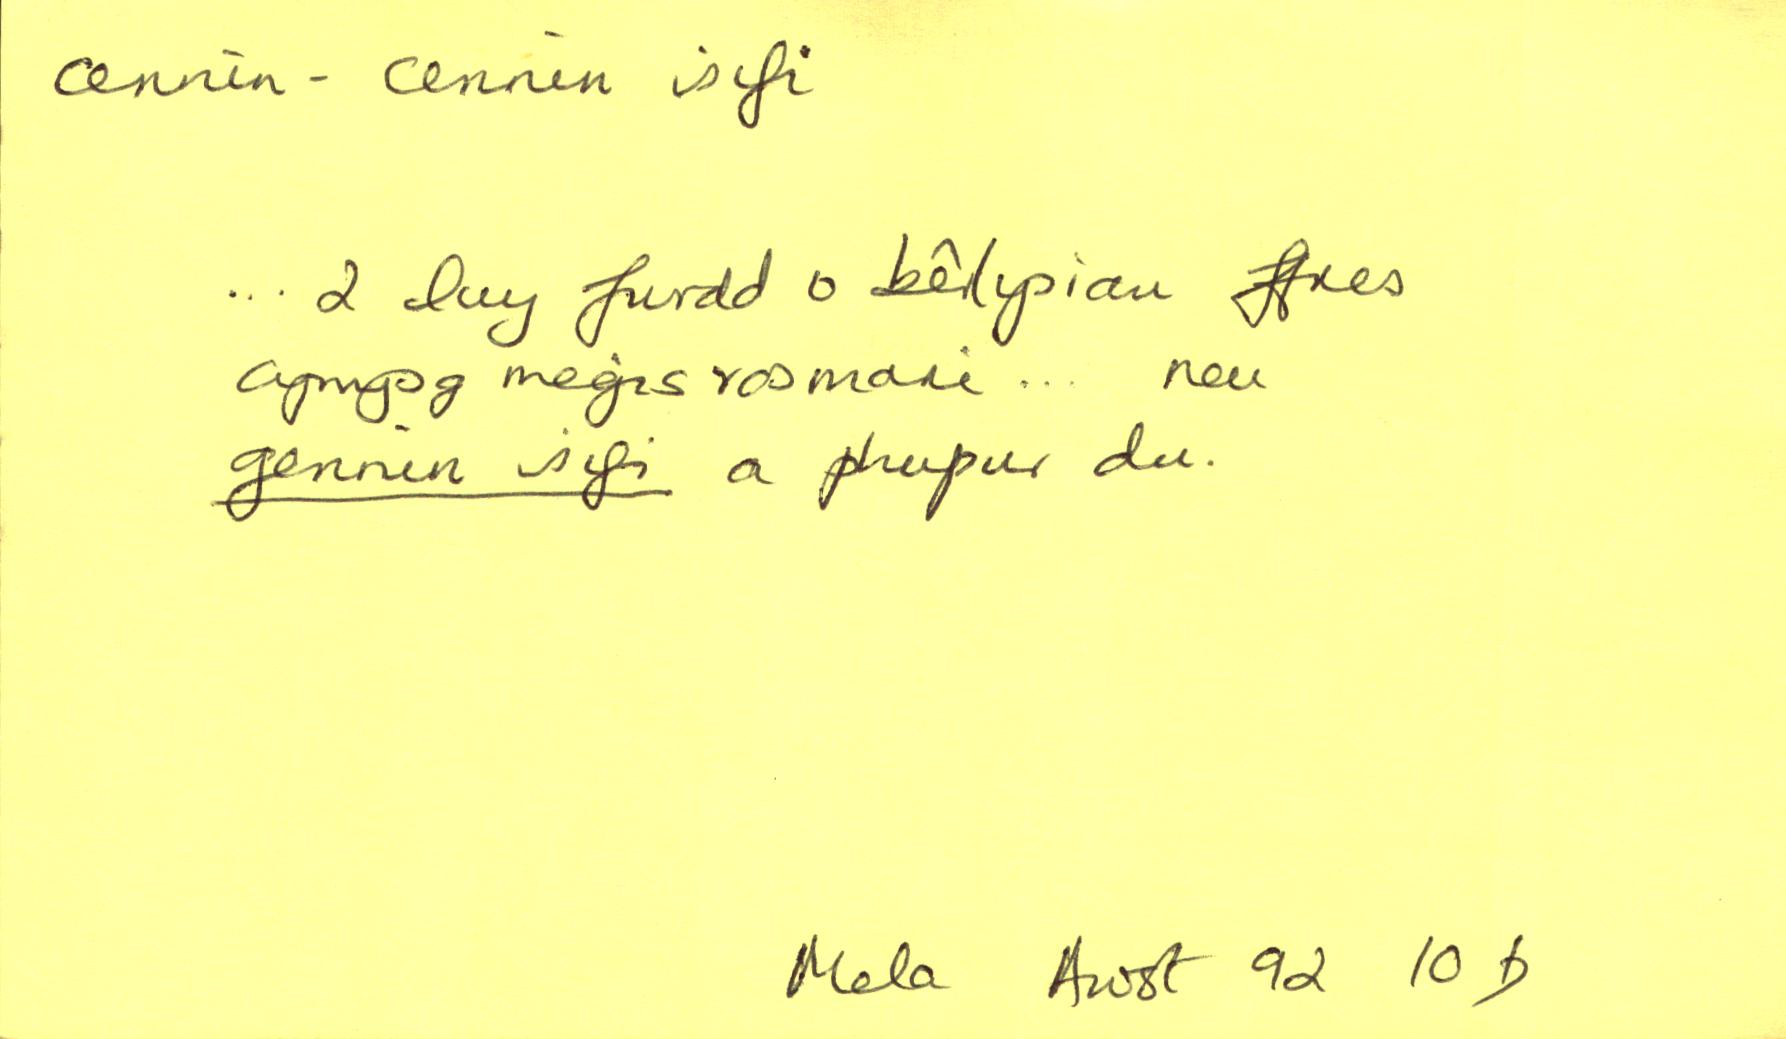 cennin - cennin syfi
... 2 lwy fwrdd o bêrlysiau ffres
cymysg megis rosmari ... neu
gennin syfi a phupur du.
Mela Awst 92 10